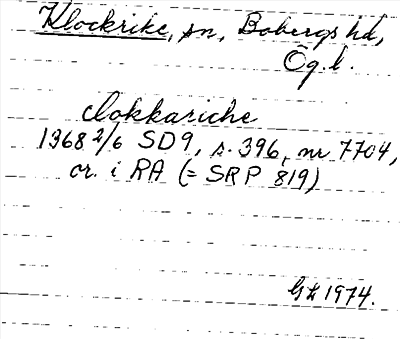 Klockrike, sn, Bobergs hd,
Ögl.
clokkariche
1368 2/6 SD9, s. 396, nr 7704,
or. i RA (= SRP 819)
1974.